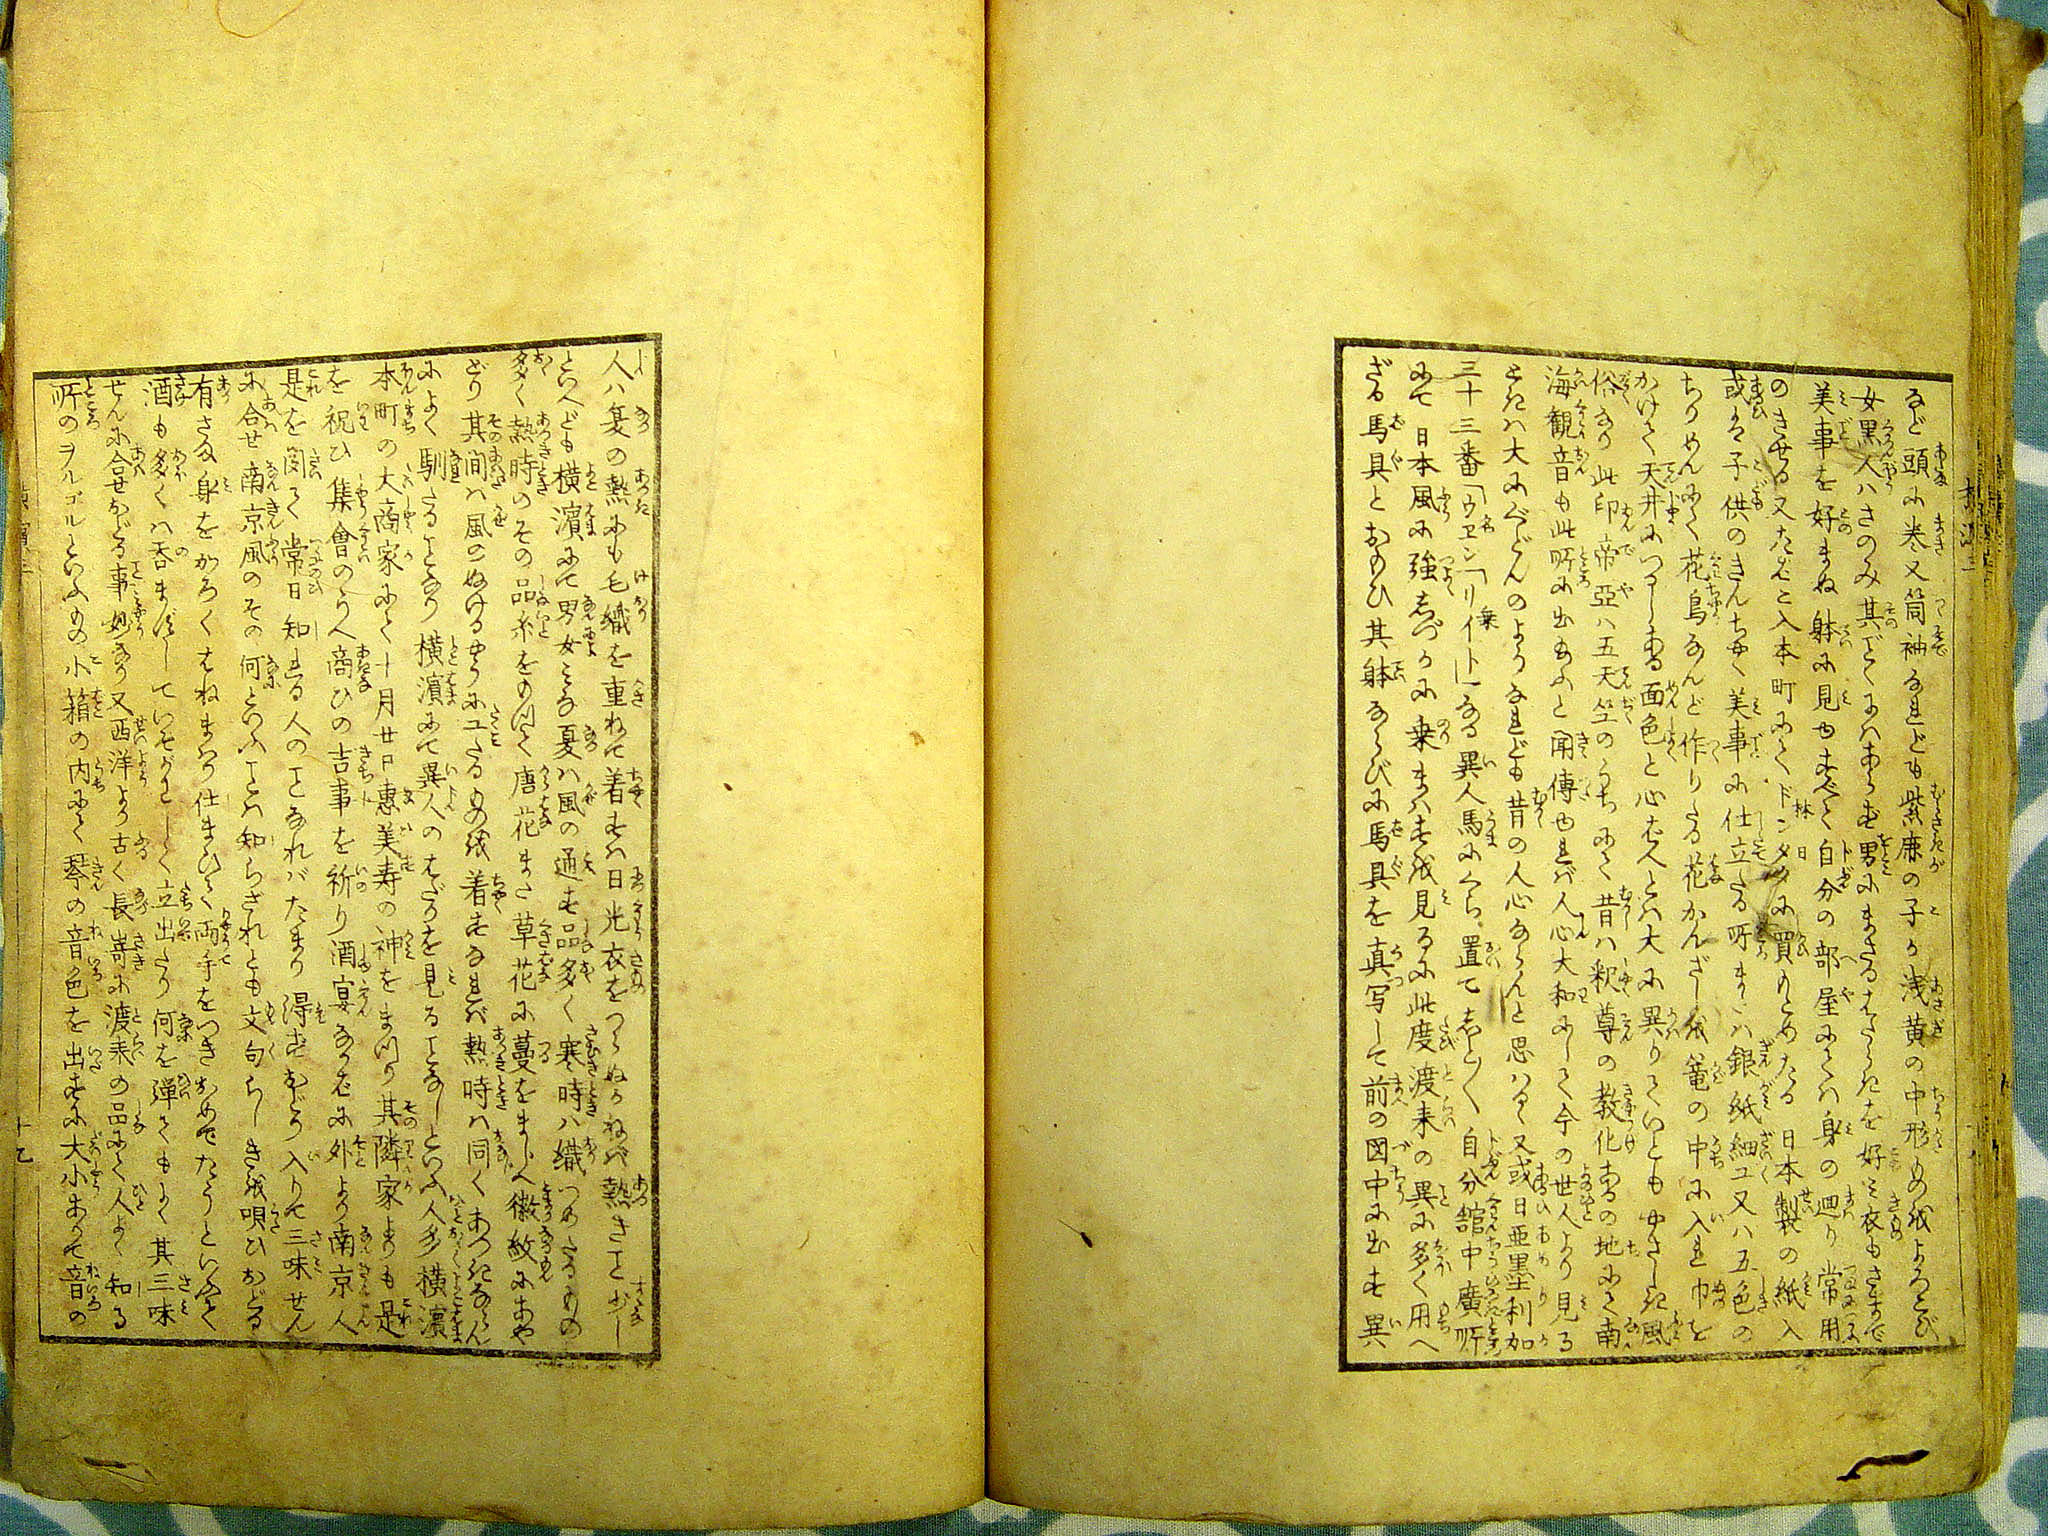 など頭に巻又筒袖なれども紫鹿の子か浅黄の中形ものをよろこび
女黒人ハさのみ其どくにハあらず男にまさるはたらきを好ミ衣もさまで
美事を好まぬ躰に見ゆ自分の部屋にてハ身の廻り常用
のきせる又たばこ入本町にてドンタクに買もとめたる日本製の紙入
或ハ子供のきんちやく美事に仕立たる所またハ銀紙細工又ハ五色の
ちりめんにて花鳥なんど作りたる花かんざしを篭の中に入れ巾を
かけて天井につるしある面色と心ざハ人とハ大に異りていともやさしき風
俗なり此印帝亜ハ五天竺のうちにて昔ハ釈尊の教化ある地にて南
海観音も此所に出あふと聞傳ゆれバ人心大和にして今の世人より見る
ときハ大にべどんのよふなれども昔の人心ならんと思ハる又或日亜墨利加
三十三番「ウエン「リイト」なる異人馬にくら置て自分舘中廣所
にて日本風に強しづかに乗まハすを見るに此度渡来の異に多く用へ
ざる馬具とおもひ其躰ならびに馬具を真写して前の図中に出す異
人ハ夏の熱にも毛織を重ねて着すハ日光衣をつらぬかねバ熱きこと少し
といへども横濱にて男女ミな夏ハ風の通す品多く寒時ハ織つめたるもの
多く熱時のその品糸をもつて唐花また草花に蔓をまじへ徽紋にあや
どり其間ハ風のぬけるやうに工たるものを着すなれバ熱時ハ同くあつきならん
によく馴たることなり横濱にて異人のはだかを見ることなしといふ人多横濱
本町の大商家にて十月廿日惠美寿の神をまつり其隣家よりも是
を祝ひ集會のうへ商ひの吉事を祈り酒宴なかばに外より南京人
是を聞て常日知れる人のことなれバたまり得ずおどり入りて三味せん
に合せ南京風のその何といふことハ知らざれとも文句らしきを唄ひおどる
有さま身をかろくはねまわり仕まひて両手をつきおめでたうといふて
酒も多くハ呑まずしていそがしく立出たり何を弾てもよく其三味
せんに合せおどる事妙なり又西洋より古く長崎に渡来の品にて人よく知る
所のヲルゴルといふもの小箱の内にて琴の音色を出すに大小ありて音の